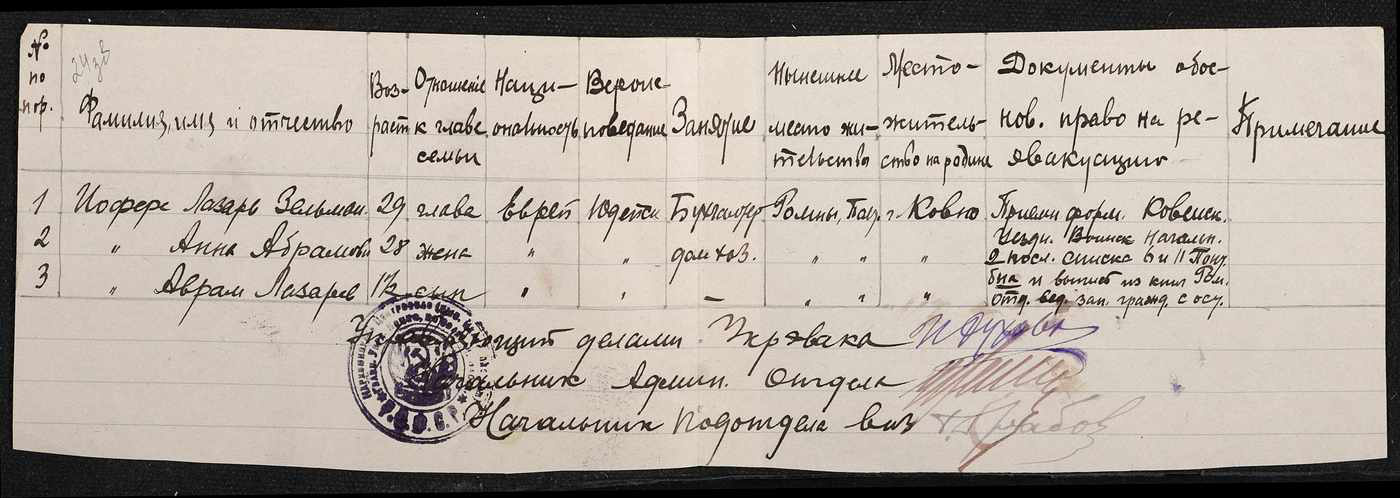 № по пор.
Фамилия, имя и отчество
Воз-
раст
Отношение
к главе
семьи
Наци-
ональность
Вероис-
поведание
Занятие
Нынешнее
место жи-
тельства
Место-
житель-
ство на родине
Документы обос-
нов. право на ре-
эвакуацию
Примечание
1 Иоффе Лазарь Зельман. 29 глава Еврей Иудейск Бухгалтер Ромны, Полт. г. Ковно
Ковенск.
Воинск Началн.
2 " Анна Абрамовн 28 жена " " дом хоз. " " "
2 посл. списка 6 и 11
3 " Аврам Лазарев 1½ сын " " — " " "
и выпис из книг Ром.
Отд. вед. зап. гражд. сост.
Управляющий делами Укрэвака
Начальник Админ. Отдела
Начальник Подотдела виз